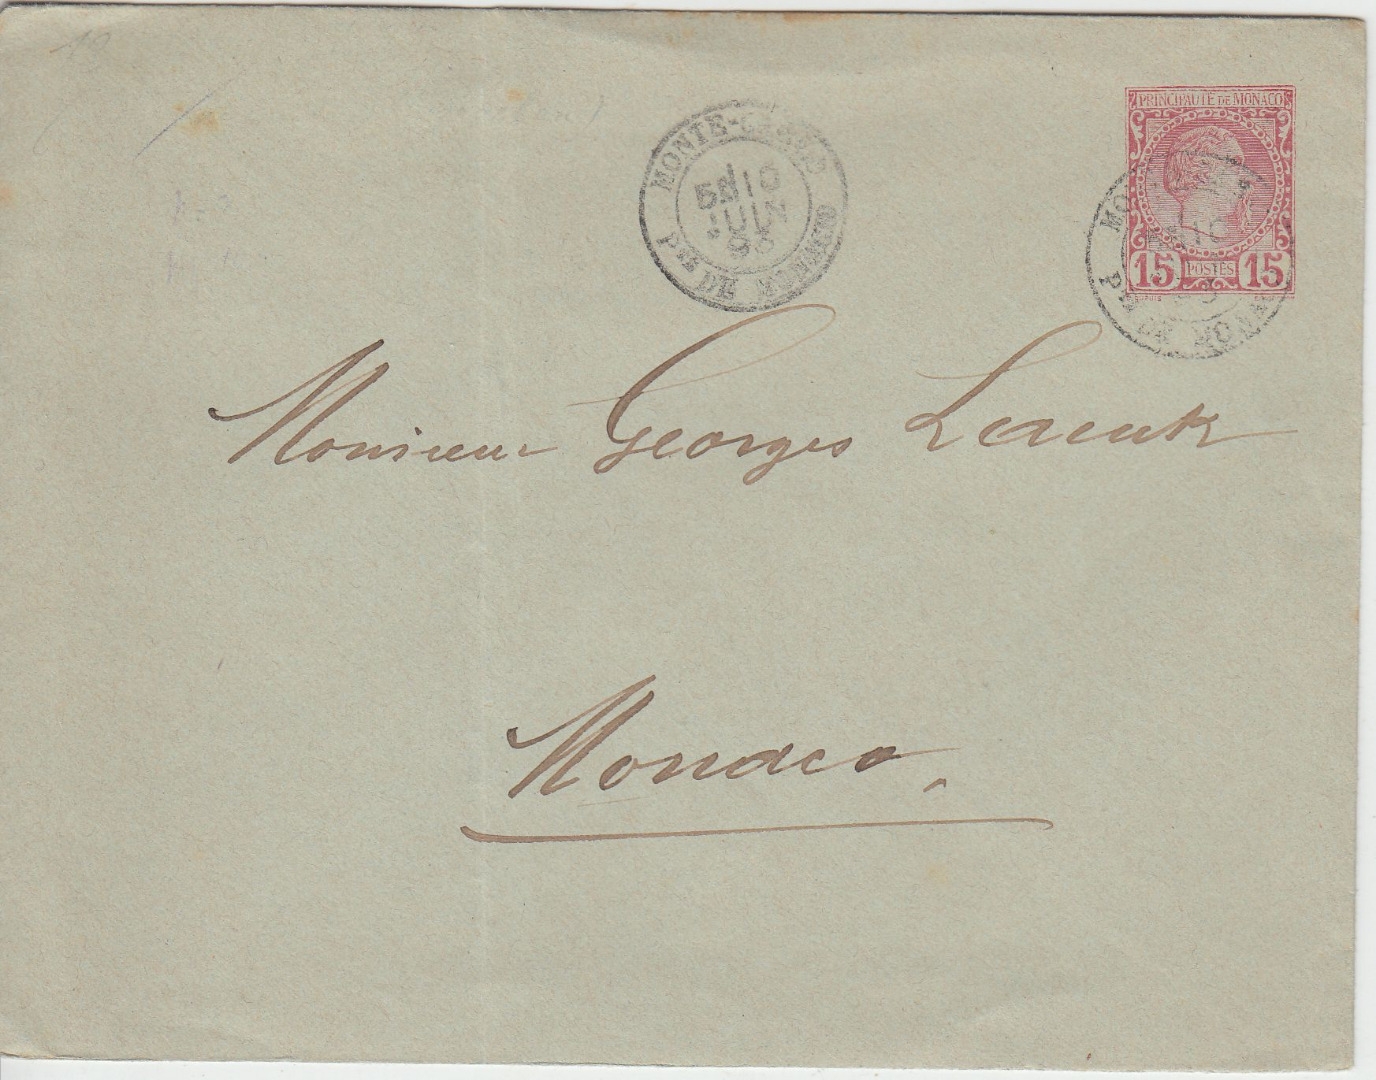 PRINCIPAUTÉ DE MONACO
15 POSTES 15
MONTE-CARLO
10
JUIN
PTÉ DE MONACO
PTÉ DE MONACO
Monsieur Georges
Monaco.